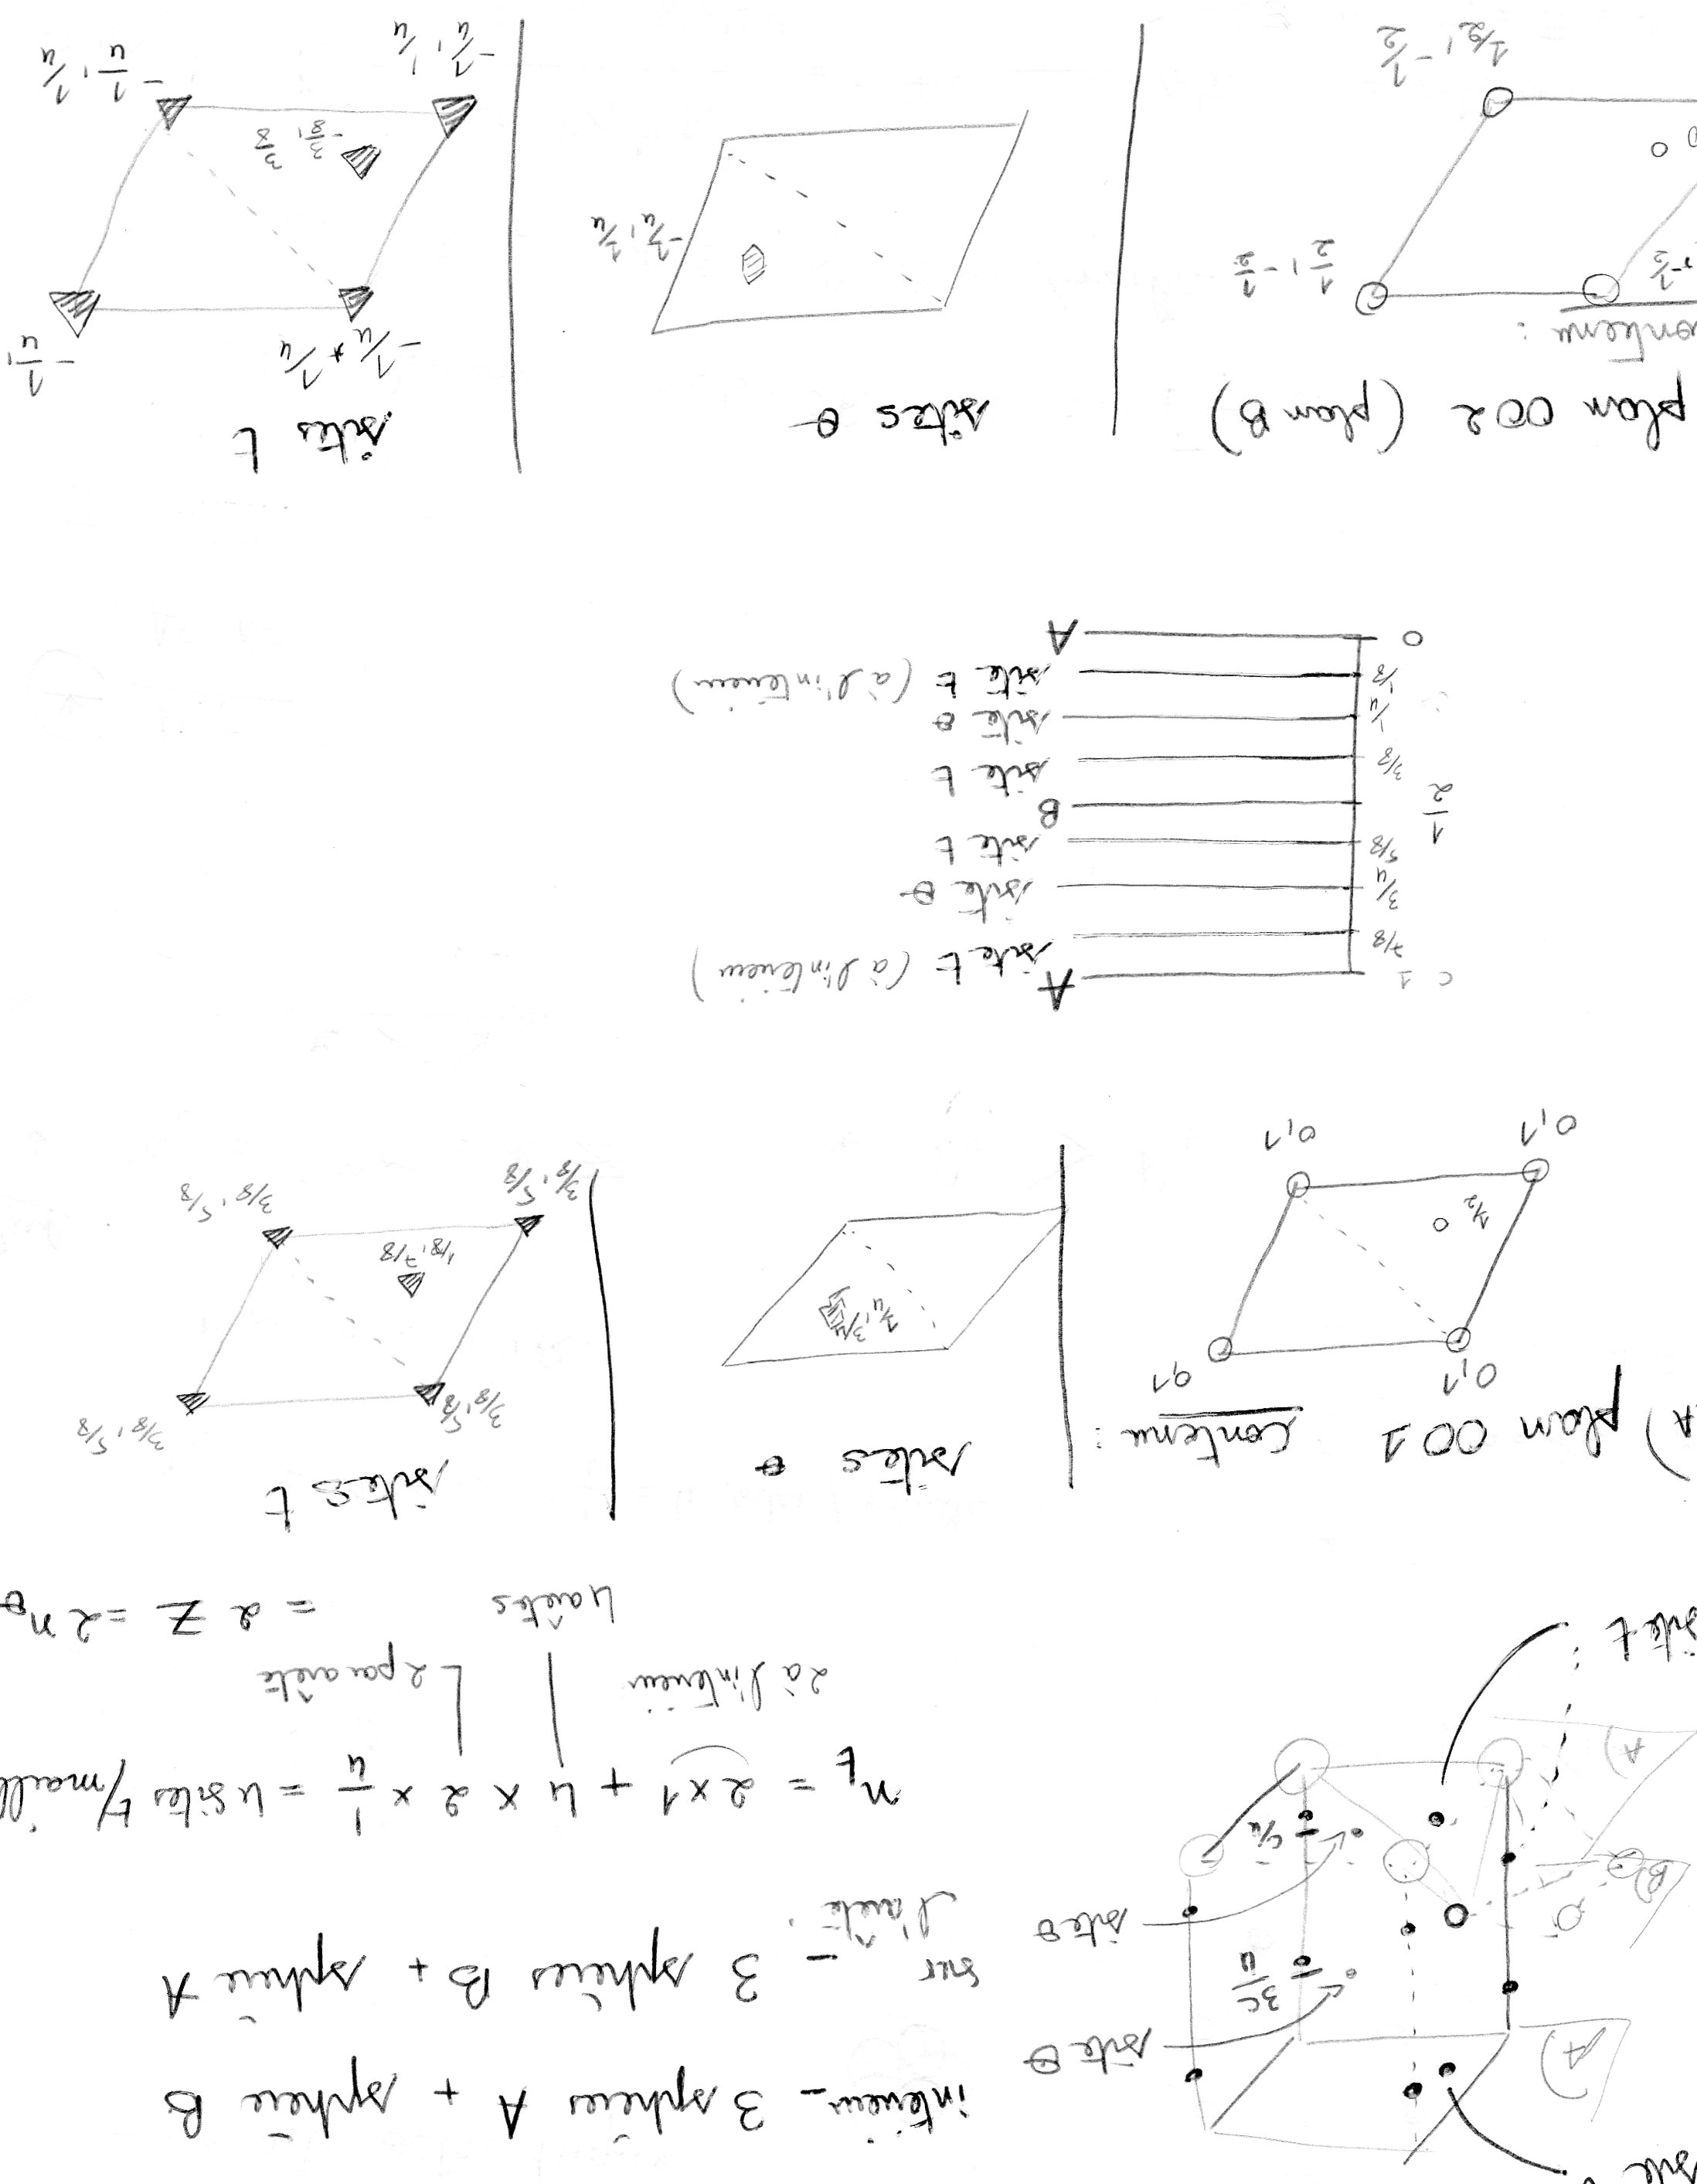 site
A)
site θ
3c/4
B)
site θ
c/4
A)
site t
interieur - 3 sphères A + sphère B
sur - 3 sphères B + sphère A
l'arête
n_t = 2 x 1 + 4 x 2 x 1/4 = 4 sites t/maill
2 à l'interieur
2 par arête
4 arêtes
= 2 Z = 2 n_θ
A) plan 001 contenu :
0,1 0,1
1/2
0,1 0,1
sites θ
1/4, 3/4
sites t
3/8, 5/8 3/8, 5/8
1/8, 7/8
3/8, 5/8 3/8, 5/8
c 1 A
7/8 site t (à l'interieur)
3/4 site θ
5/8 site t
1/2 B
3/8 site t
1/4 site θ
1/8 site t (à l'interieur)
0 A
plan 002 (plan B)
contenu :
-1/2
1/2, -1/2
0
1/2, -1/2
sites θ
-1/4, 1/4
sites t
-1/4 + 1/4 -1/4,
-3/8, 3/8
-1/4, 1/4 -1/4, 1/4